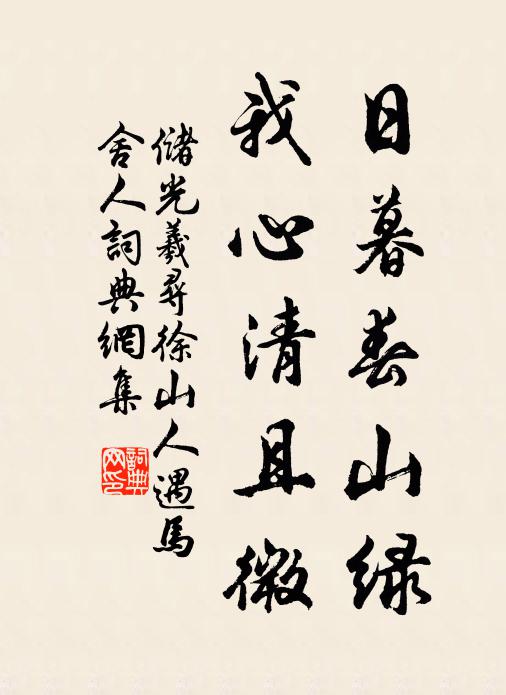 日暮春山綠
我心清且微
儲光羲尋徐山人遇馬
舍人詞典網集
詞典網印